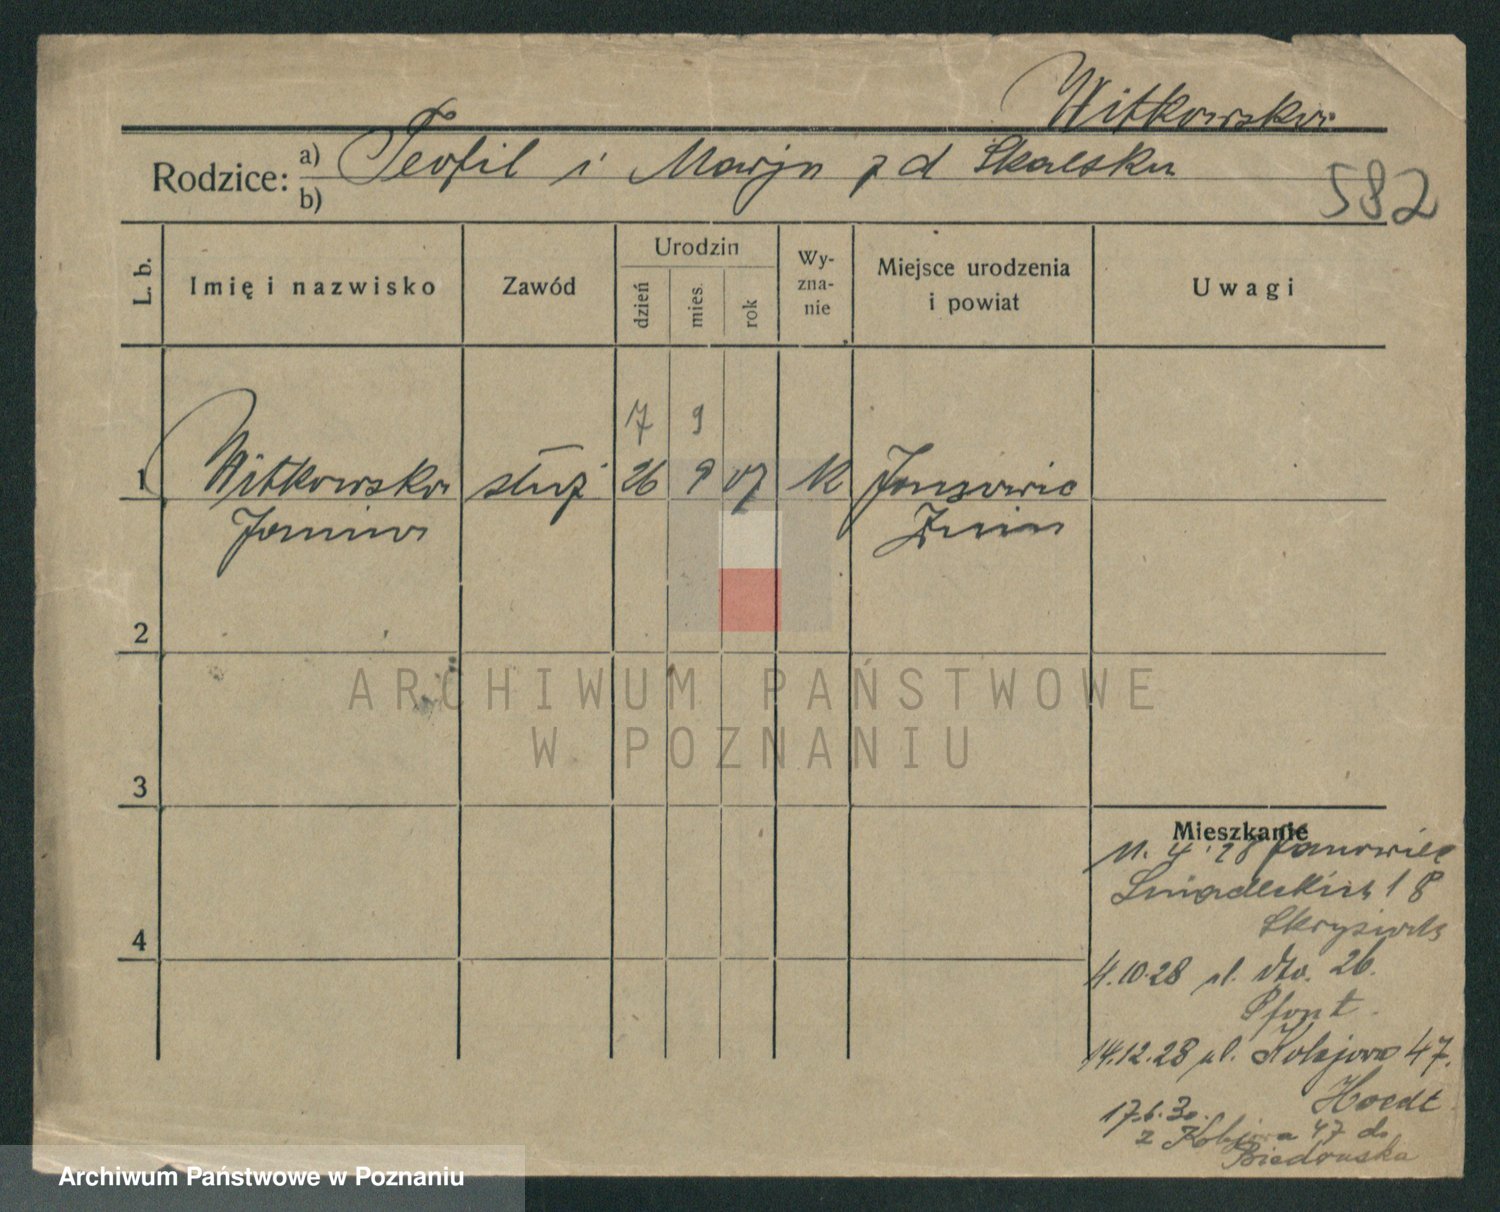 Witkowska
Rodzice: a) Teofil i Marja z d Skalska
b)
582
L. b.
Imię i nazwisko
Zawód
Urodzin
dzień
mies.
rok
Wy-
zna-
nie
Miejsce urodzenia
i powiat
Uwagi
7 9
1 Witkowska służ 26 9 07 k Janowiec
Janina Żnin
2
3
4
Mieszkanie
11.4.28 Janowiec
Śniadeckich 18
4.10.28 ul. dto. 26.
Pfont.
14.12.28 ul. Kolejowa 47.
Hoedt
17.6.30.
z Kolejowa 47 do
Biedruska
ARCHIWUM PAŃSTWOWE
W POZNANIU
Archiwum Państwowe w Poznaniu